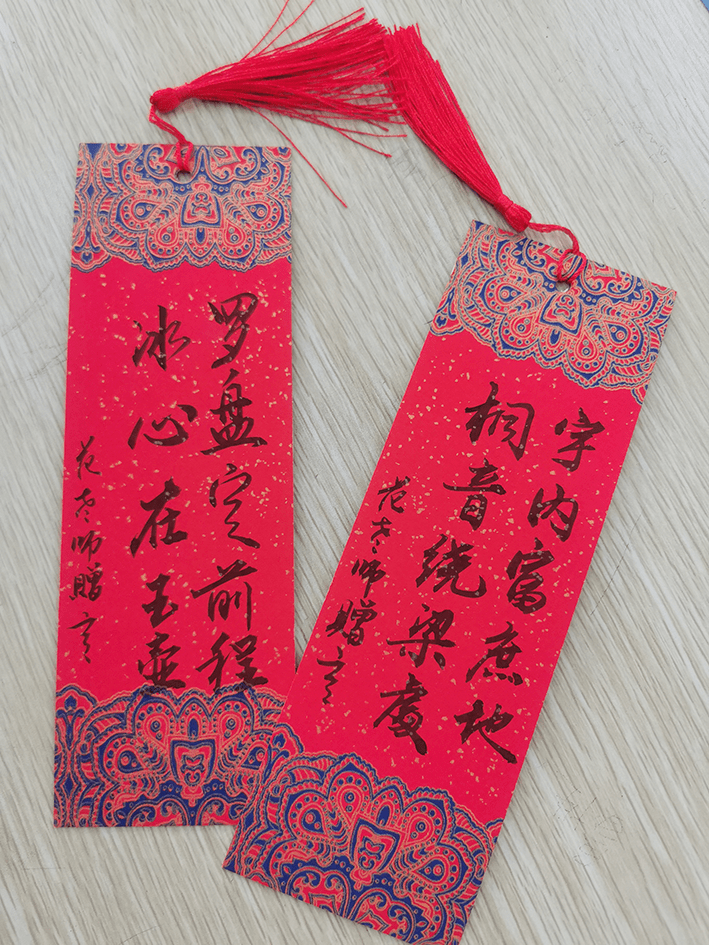 罗盘定前程
冰心在玉壶
范老师赠言
宇内富庶地
桐音绕梁处
范老师赠言